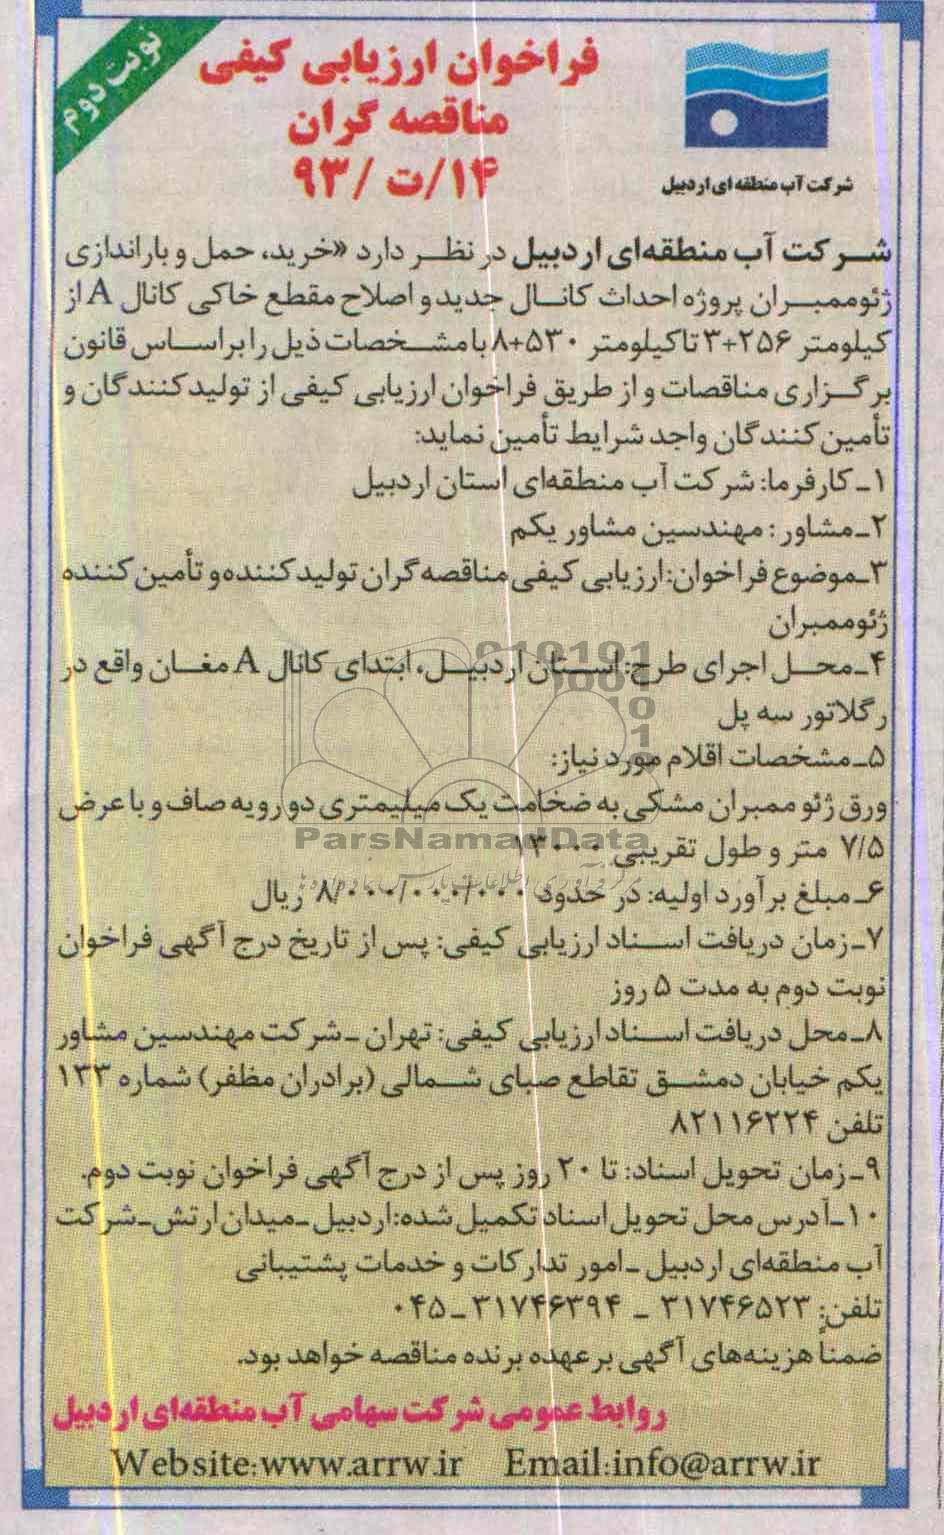 نوبت دوم
فراخوان ارزیابی کیفی
مناقصه گران
۱۴/ت /۹۳
شرکت آب منطقه ای اردبیل
شرکت آب منطقه‌ای اردبیل در نظر دارد «خرید، حمل و باراندازی
ژئوممبران پروژه احداث کانال جدید و اصلاح مقطع خاکی کانال A از
کیلومتر ۲۵۶+۳ تا کیلومتر ۵۳۰+۸ با مشخصات ذیل را براساس قانون
برگزاری مناقصات و از طریق فراخوان ارزیابی کیفی از تولیدکنندگان و
تأمین‌کنندگان واجد شرایط تأمین نماید:
۱ـ کارفرما: شرکت آب منطقه‌ای استان اردبیل
۲ـ مشاور : مهندسین مشاور یکم
۳ـ موضوع فراخوان: ارزیابی کیفی مناقصه گران تولیدکننده و تأمین کننده
ژئوممبران
۴ـ محل اجرای طرح: استان اردبیل، ابتدای کانال A مغان واقع در
رگلاتور سه پل
۵ـ مشخصات اقلام مورد نیاز:
ورق ژئوممبران مشکی به ضخامت یک میلیمتری دو رویه صاف و با عرض
۷/۵ متر و طول تقریبی ۱۳۰۰۰
۶ـ مبلغ برآورد اولیه: در حدود ۸/۰۰۰/۰۰۰/۰۰۰ ریال
۷ـ زمان دریافت اسناد ارزیابی کیفی: پس از تاریخ درج آگهی فراخوان
نوبت دوم به مدت ۵ روز
۸ـ محل دریافت اسناد ارزیابی کیفی: تهران ـ شرکت مهندسین مشاور
یکم خیابان دمشق تقاطع صبای شمالی (برادران مظفر) شماره ۱۳۳
تلفن ۸۲۱۱۶۲۲۴
۹ـ زمان تحویل اسناد: تا ۲۰ روز پس از درج آگهی فراخوان نوبت دوم.
۱۰ـ آدرس محل تحویل اسناد تکمیل شده: اردبیل ـ میدان ارتش ـ شرکت
آب منطقه‌ای اردبیل ـ امور تدارکات و خدمات پشتیبانی
تلفن: ۳۱۷۴۶۵۲۳ ـ ۳۱۷۴۶۳۹۴ ـ ۰۴۵
ضمناً هزینه‌های آگهی بر عهده برنده مناقصه خواهد بود.
روابط عمومی شرکت سهامی آب منطقه‌ای اردبیل
Website:www.arrw.ir Email:info@arrw.ir
ParsNamadData